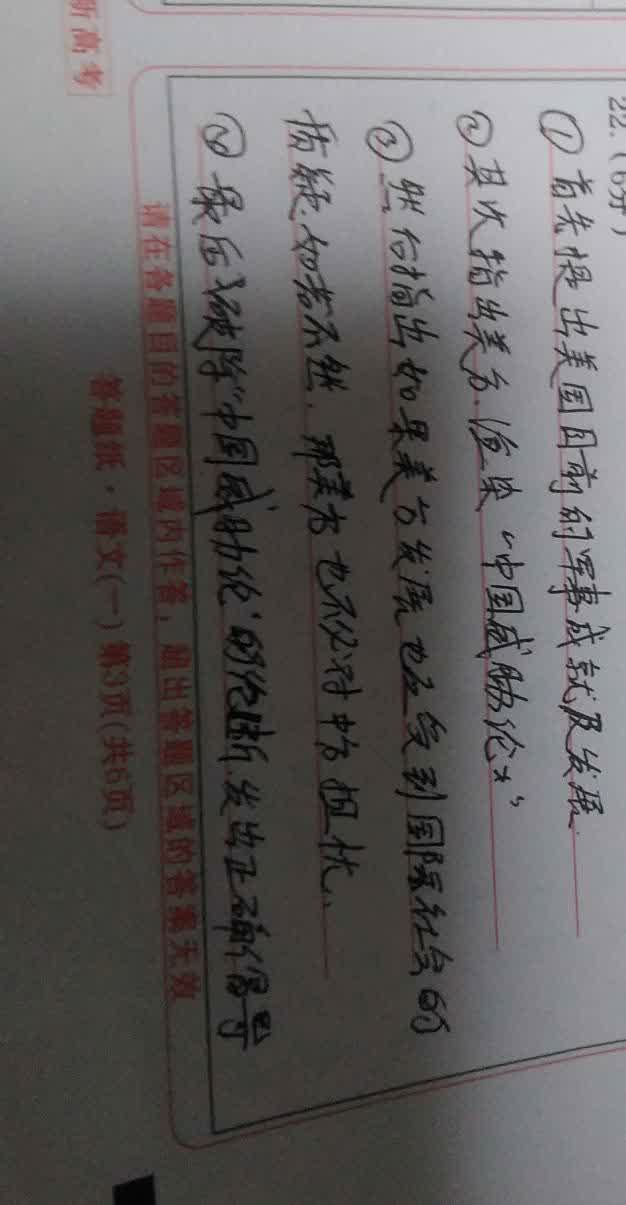 22.(6分)
①首先提出美国目前的军事成就及发展.
②其次指出美方.渲染“中国威胁论”,
③然后指出如果美方发展也会受到国际社会的
质疑.如若不然.那美方也不必对中方担忧.
④最后破除“中国威胁论”的论断.发出正确倡导
请在各题目的答题区域内作答,超出答题区域的答案无效
答题纸·语文(一) 第3页(共6页)
新高考